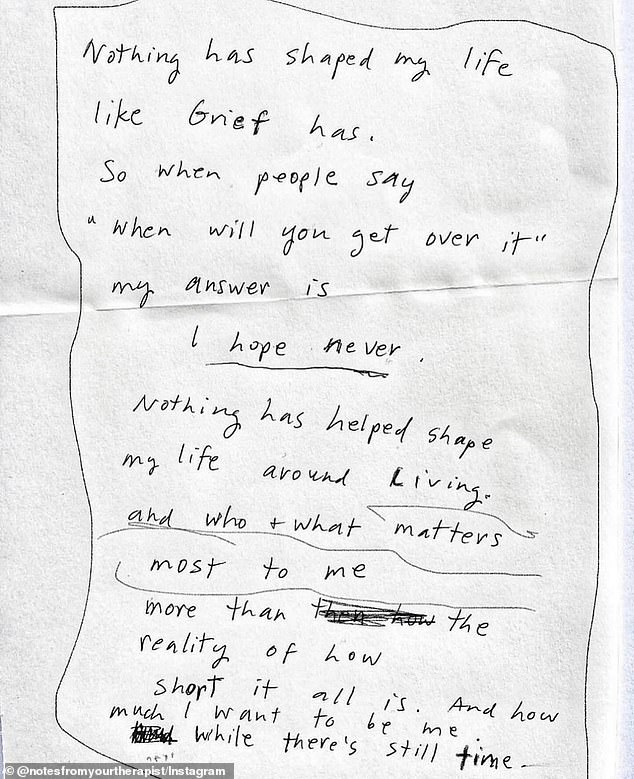 Nothing has shaped my life
like Grief has.
So when people say
"when will you get over it"
my answer is
I hope never.
Nothing has helped shape
my life around Living.
and who + what matters
most to me
more than the
reality of how
short it all is. And how
much I want to be me
while there's still time.
@notesfromyourtherapist/Instagram